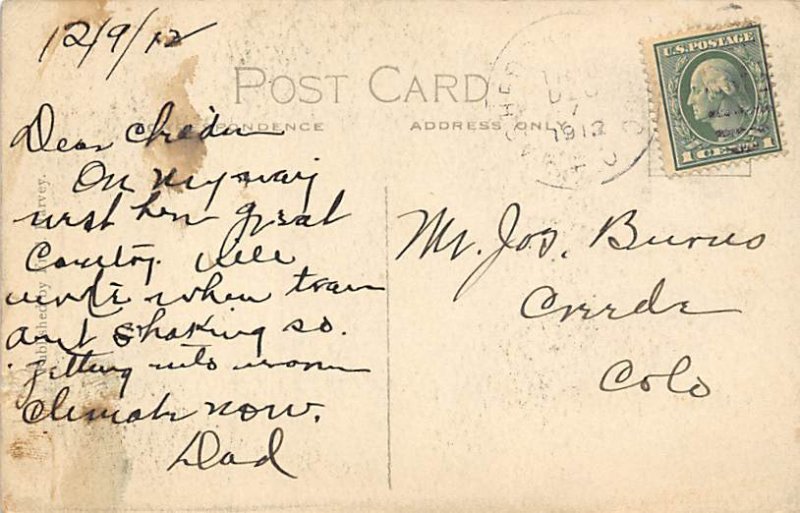 12/9/12
POST CARD
CORRESPONDENCE
ADDRESS ONLY
U.S. POSTAGE
1 CENT 1
DEC
1912
Dear
On my way
west here great
Country. will
write when train
aint shaking so.
getting into warm
climate now.
Dad
Mr. Jos. Burns
Creede
Colo
Published by